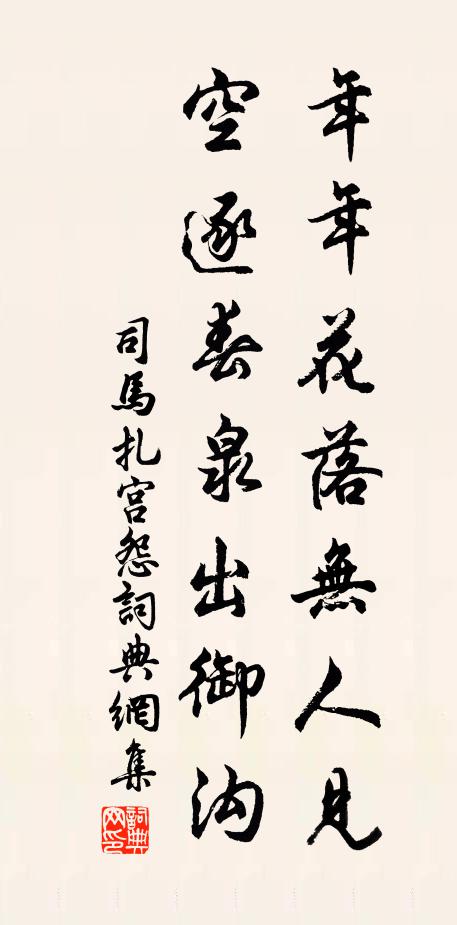 年年花落無人見
空逐春泉出御沟
司馬扎宮怨詞典網集
詞典
网印